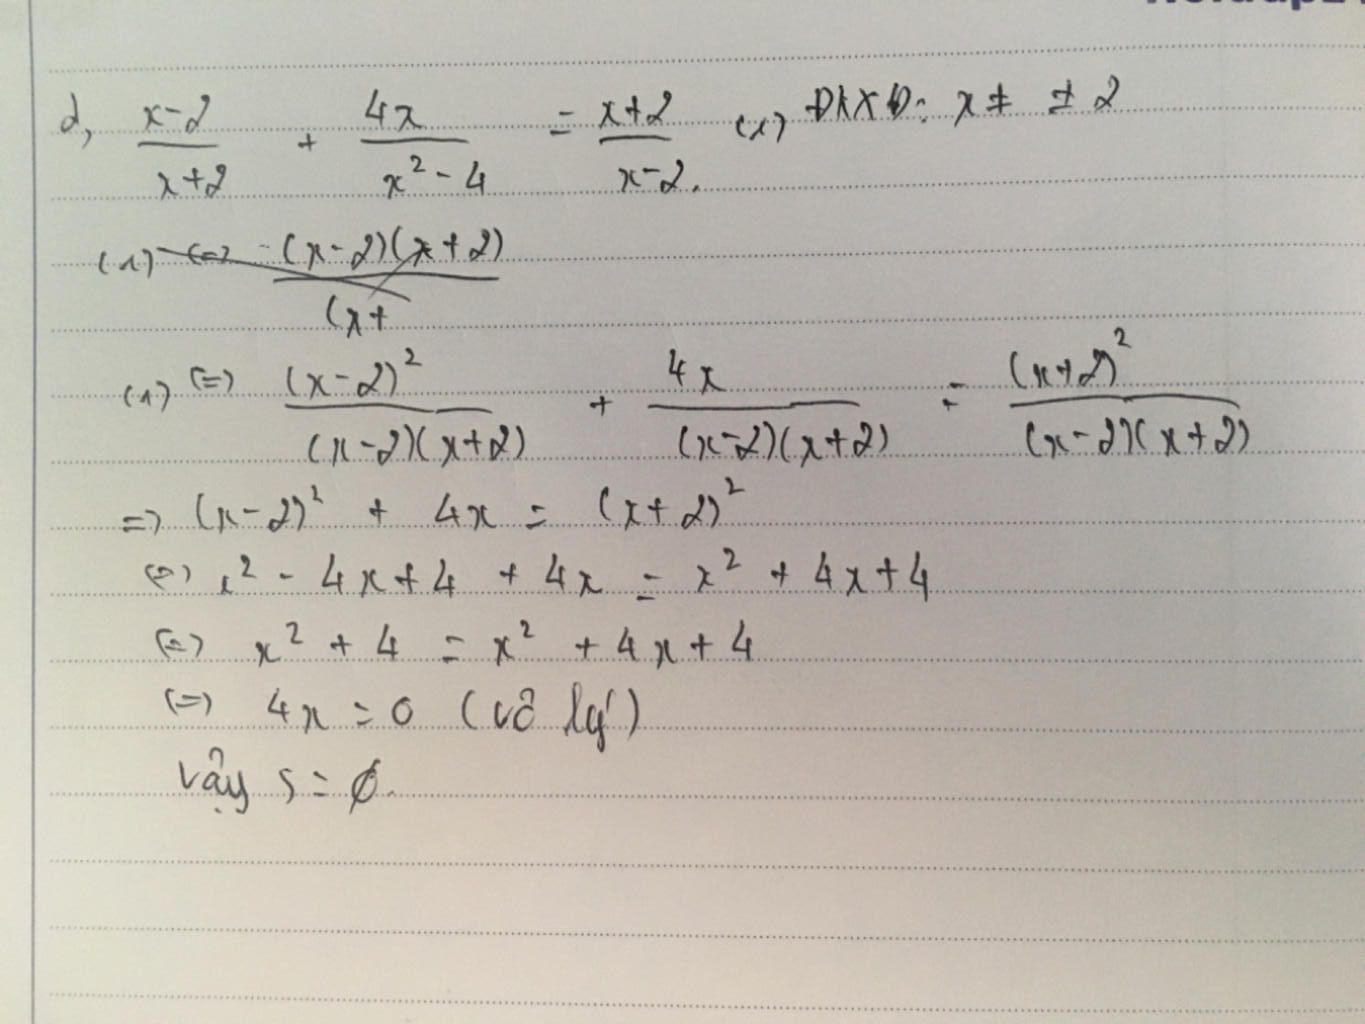 d, x-2/x+2 + 4x/x²-4 = x+2/x-2. (1) ĐKXĐ: x ≠ ±2
(1) <=> (x-2)(x+2)/(x+
(1) <=> (x-2)²/(x-2)(x+2) + 4x/(x-2)(x+2) = (x+2)²/(x-2)(x+2)
=> (x-2)² + 4x = (x+2)²
<=> x² - 4x + 4 + 4x = x² + 4x + 4
<=> x² + 4 = x² + 4x + 4
<=> 4x = 0 (vô lý)
Vậy S = ∅.